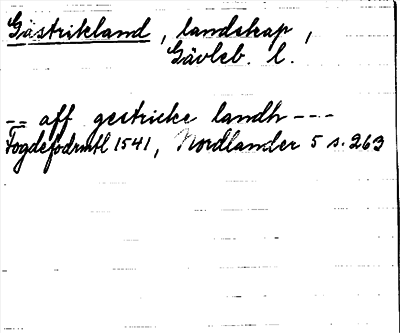 Gästrikland, landskap,
Gävleb. l.
-- aff gestricke landh ---
Fogdefodrmtl 1541, Nordlander 5 s. 263